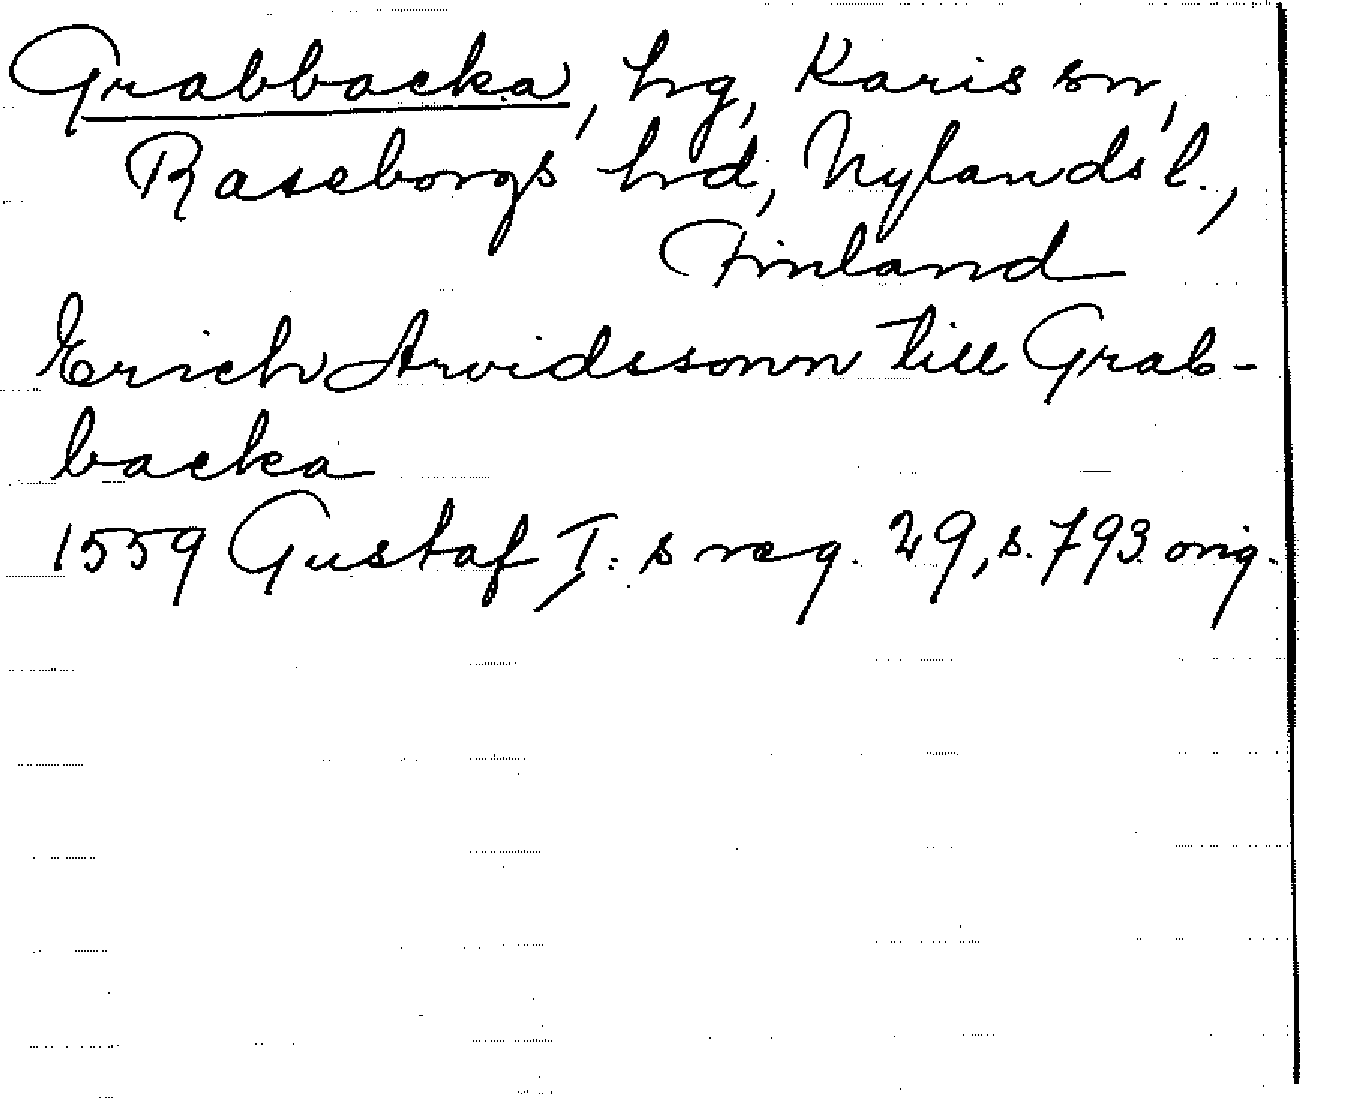 Grabbacka, hg, Karis sn,
Raseborgs hrd, Nylands l.,
Finland
Erich Arvidssonn till Grab-
backa
1559 Gustaf I: s reg. 29, s. 793 orig.